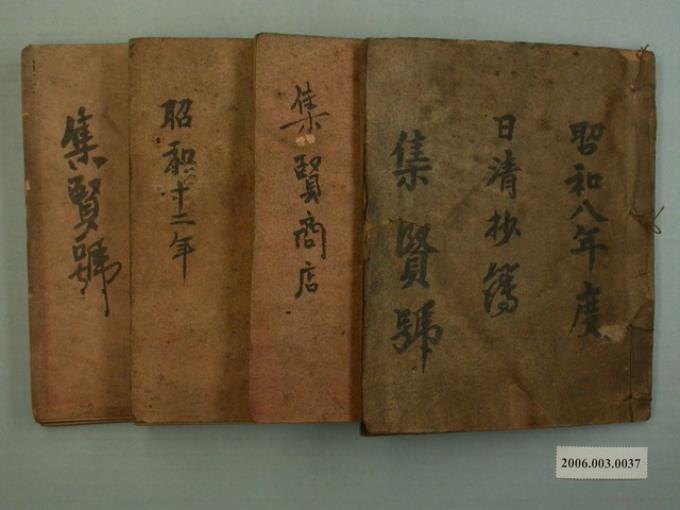 昭和八年度
日清抄簿
集賢號
集賢商店
昭和十二年
集賢號
2006.003.0037